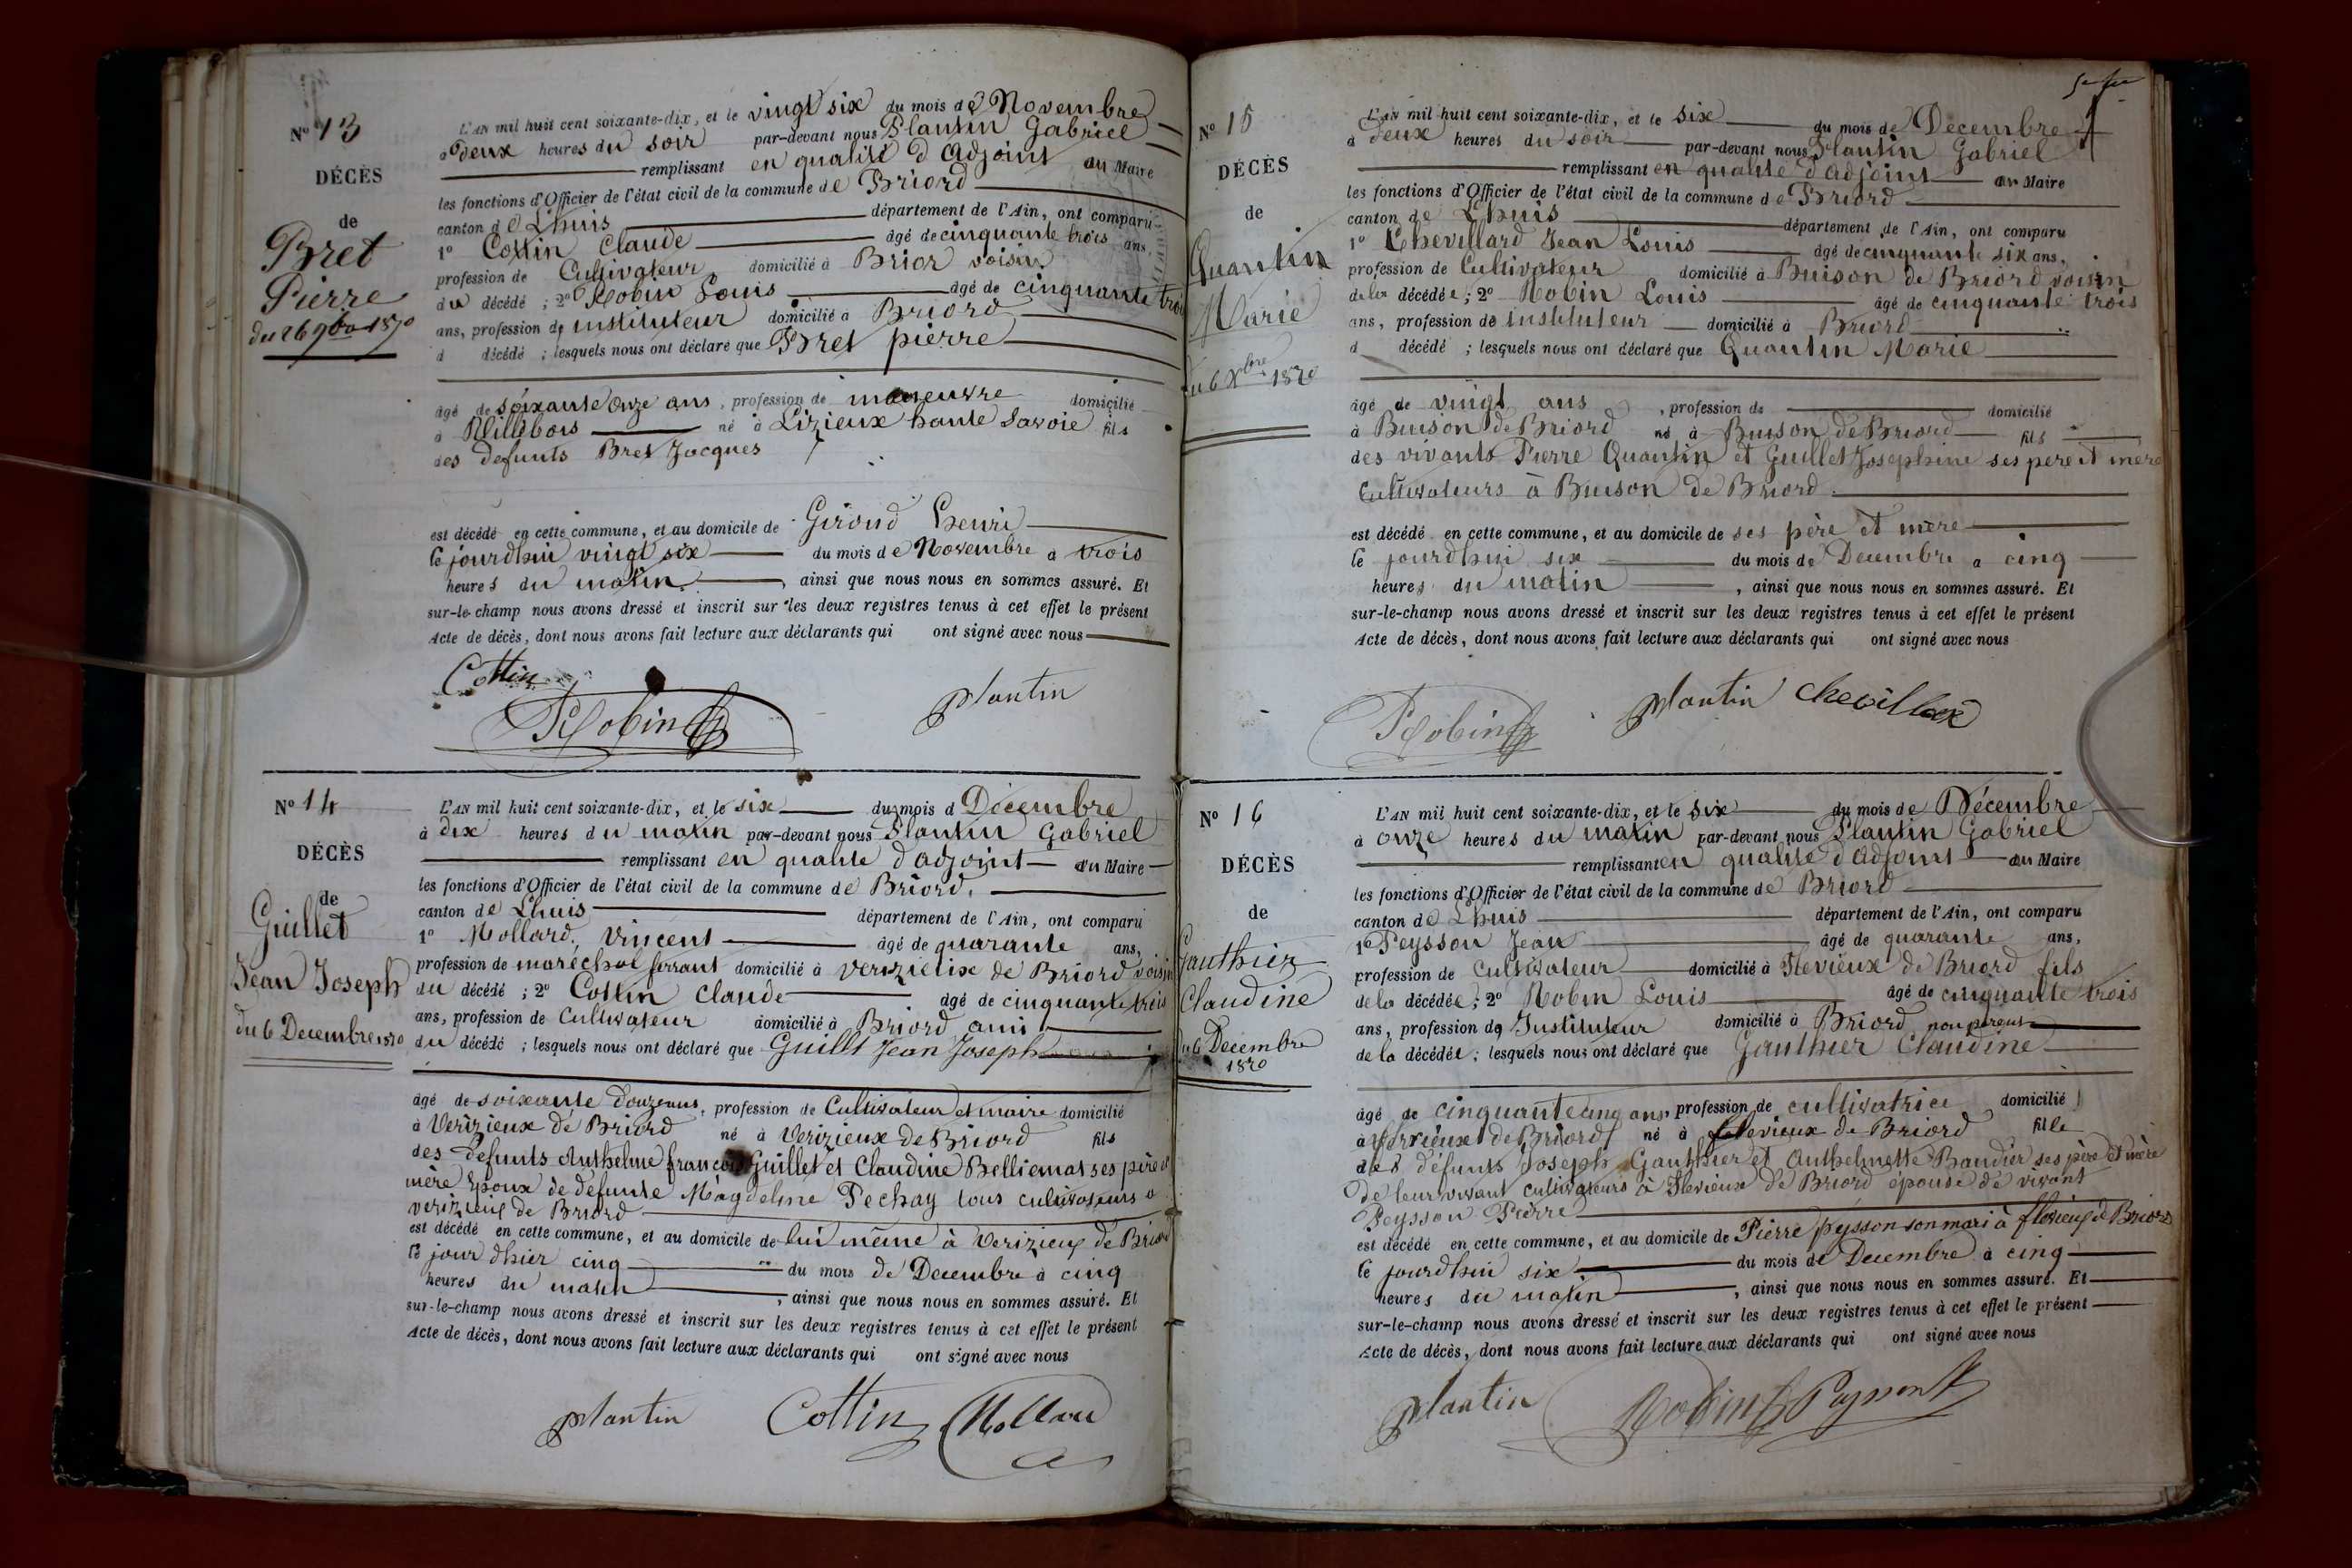 N° 13
DÉCÈS
de
Bret
Pierre
du 26 9bre 1870
L'AN mil huit cent soixante-dix, et le vingt six du mois de Novembre
à deux heures du soir par-devant nous Plantin Gabriel
remplissant en qualité d'adjoint au Maire
les fonctions d'Officier de l'état civil de la commune de Briord
canton de Lhuis département de l'Ain, ont comparu
1° Cottin Claude âgé de cinquante trois ans,
profession de Cultivateur domicilié à Brior voisin
du décédé ; 2° Robin Louis âgé de cinquante trois
ans, profession de instituteur domicilié à Briord
d décédé ; lesquels nous ont déclaré que Bret pierre
âgé de soixante onze ans, profession de manoeuvre domicilié
à Millebois né à Lizieux haute Savoie fils
des defunts Bret Jacques
est décédé en cette commune, et au domicile de Giroud henri
le jourdhui vingt six du mois de Novembre à trois
heures du matin, ainsi que nous nous en sommes assuré. Et
sur-le-champ nous avons dressé et inscrit sur les deux registres tenus à cet effet le présent
Acte de décès, dont nous avons fait lecture aux déclarants qui ont signé avec nous
Cottin
Robin Plantin
N° 14
DÉCÈS
de
Guillet
Jean Joseph
du 6 Decembre 1870
L'AN mil huit cent soixante-dix, et le six du mois d Décembre
à dix heures du matin par-devant nous Plantin Gabriel
remplissant en qualité d'adjoint au Maire
les fonctions d'Officier de l'état civil de la commune de Briord.
canton de Lhuis département de l'Ain, ont comparu
1° Mollard, Vincent âgé de quarante ans,
profession de maréchal ferrant domicilié à verizieux de Briord voisin
du décédé ; 2° Cottin Claude âgé de cinquante trois
ans, profession de Cultivateur domicilié à Briord ami
du décédé ; lesquels nous ont déclaré que Guillt Jean Joseph
âgé de soixante douze ans, profession de Cultivateur et maire domicilié
à Verizieux de Briord né à Verizieux de Briord fils
des defunts Anthelme françois Guillet et Claudine Belliemat ses père et
mère Epoux de defunte Magdeleine Pechay tous cultivateurs a
verizieux de Briord
est décédé en cette commune, et au domicile de lui même à Verizieux de Briord
le jour dhier cinq du mois de Decembre à cinq
heures du matin, ainsi que nous nous en sommes assuré. Et
sur-le-champ nous avons dressé et inscrit sur les deux registres tenus à cet effet le présent
Acte de décès, dont nous avons fait lecture aux déclarants qui ont signé avec nous
Plantin Cottin Mollard
N° 15
DÉCÈS
de
Quantin
Marie
du 6 Xbre 1870
L'AN mil huit cent soixante-dix, et le six du mois de Decembre
à deux heures du soir par-devant nous Plantin Gabriel
remplissant en qualité d'adjoint au Maire
les fonctions d'Officier de l'état civil de la commune de Briord
canton de Lhuis département de l'Ain, ont comparu
1° Chevillard Jean Louis âgé de cinquante six ans,
profession de Cultivateur domicilié à Buison de Briord voisin
de la décédée ; 2° Robin Louis âgé de cinquante trois
ans, profession de instituteur domicilié à Briord
d décédé ; lesquels nous ont déclaré que Quantin Marie
âgé de vingt ans, profession de domicilié
à Buison de Briord né à Buison de Briord fils
des vivants Pierre Quantin et Guillet Josephine ses pere et mère
Cultivateurs à Buison de Briord.
est décédé en cette commune, et au domicile de ses père et mère
le jourdhui six du mois de Decembre à cinq
heures du matin, ainsi que nous nous en sommes assuré. Et
sur-le-champ nous avons dressé et inscrit sur les deux registres tenus à cet effet le présent
Acte de décès, dont nous avons fait lecture aux déclarants qui ont signé avec nous
Robin Plantin Chevillard
N° 16
DÉCÈS
de
Gauthier
Claudine
du 6 Decembre
1870
L'AN mil huit cent soixante-dix, et le six du mois de Décembre
à onze heures du matin par-devant nous Plantin Gabriel
remplissant en qualité d'adjoint au Maire
les fonctions d'Officier de l'état civil de la commune de Briord
canton de Lhuis département de l'Ain, ont comparu
1° Peysson Jean âgé de quarante ans,
profession de Cultivateur domicilié à Flevieux de Briord fils
de la décédée ; 2° Robin Louis âgé de cinquante trois
ans, profession de Instituteur domicilié à Briord non parent
de la décédée ; lesquels nous ont déclaré que Gauthier Claudine
âgé de cinquante cinq ans, profession de cultivatrice domicilié
à flevieux de Briord né à flevieux de Briord fille
des défunts Joseph Gauthier et Anthelmette Baudier ses père et mère
de leur vivant cultivateurs à Flevieux de Briord épouse de vivant
Peysson Pierre
est décédé en cette commune, et au domicile de Pierre peysson son mari à flevieux de Briord
le jourdhui six du mois de Decembre à cinq
heures du matin, ainsi que nous nous en sommes assuré. Et
sur-le-champ nous avons dressé et inscrit sur les deux registres tenus à cet effet le présent
Acte de décès, dont nous avons fait lecture aux déclarants qui ont signé avec nous
Plantin Robin